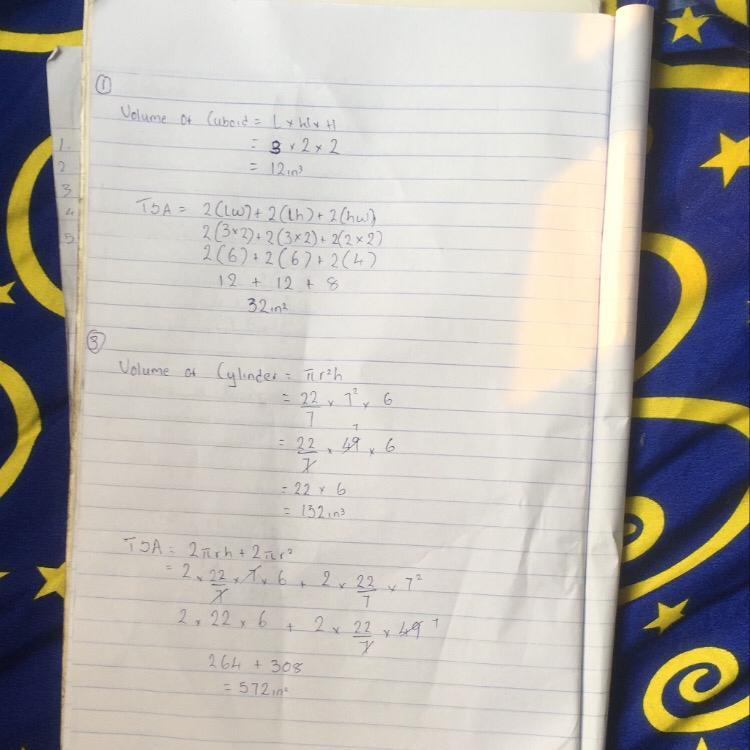 ①
Volume of Cuboid = L × W × H
= 3 × 2 × 2
= 12in³
TSA = 2(Lw) + 2(Lh) + 2(hw)
2(3×2) + 2(3×2) + 2(2×2)
2(6) + 2(6) + 2(4)
12 + 12 + 8
32in²
③
Volume of Cylinder = πr²h
= 22/7 × 7² × 6
= 22/7 × 49 7 × 6
= 22 × 6
= 132in³
TSA = 2πrh + 2πr²
= 2 × 22/7 × 7 × 6 + 2 × 22/7 × 7²
2 × 22 × 6 + 2 × 22/7 × 49 7
264 + 308
= 572in²
1.
2
3
4
5